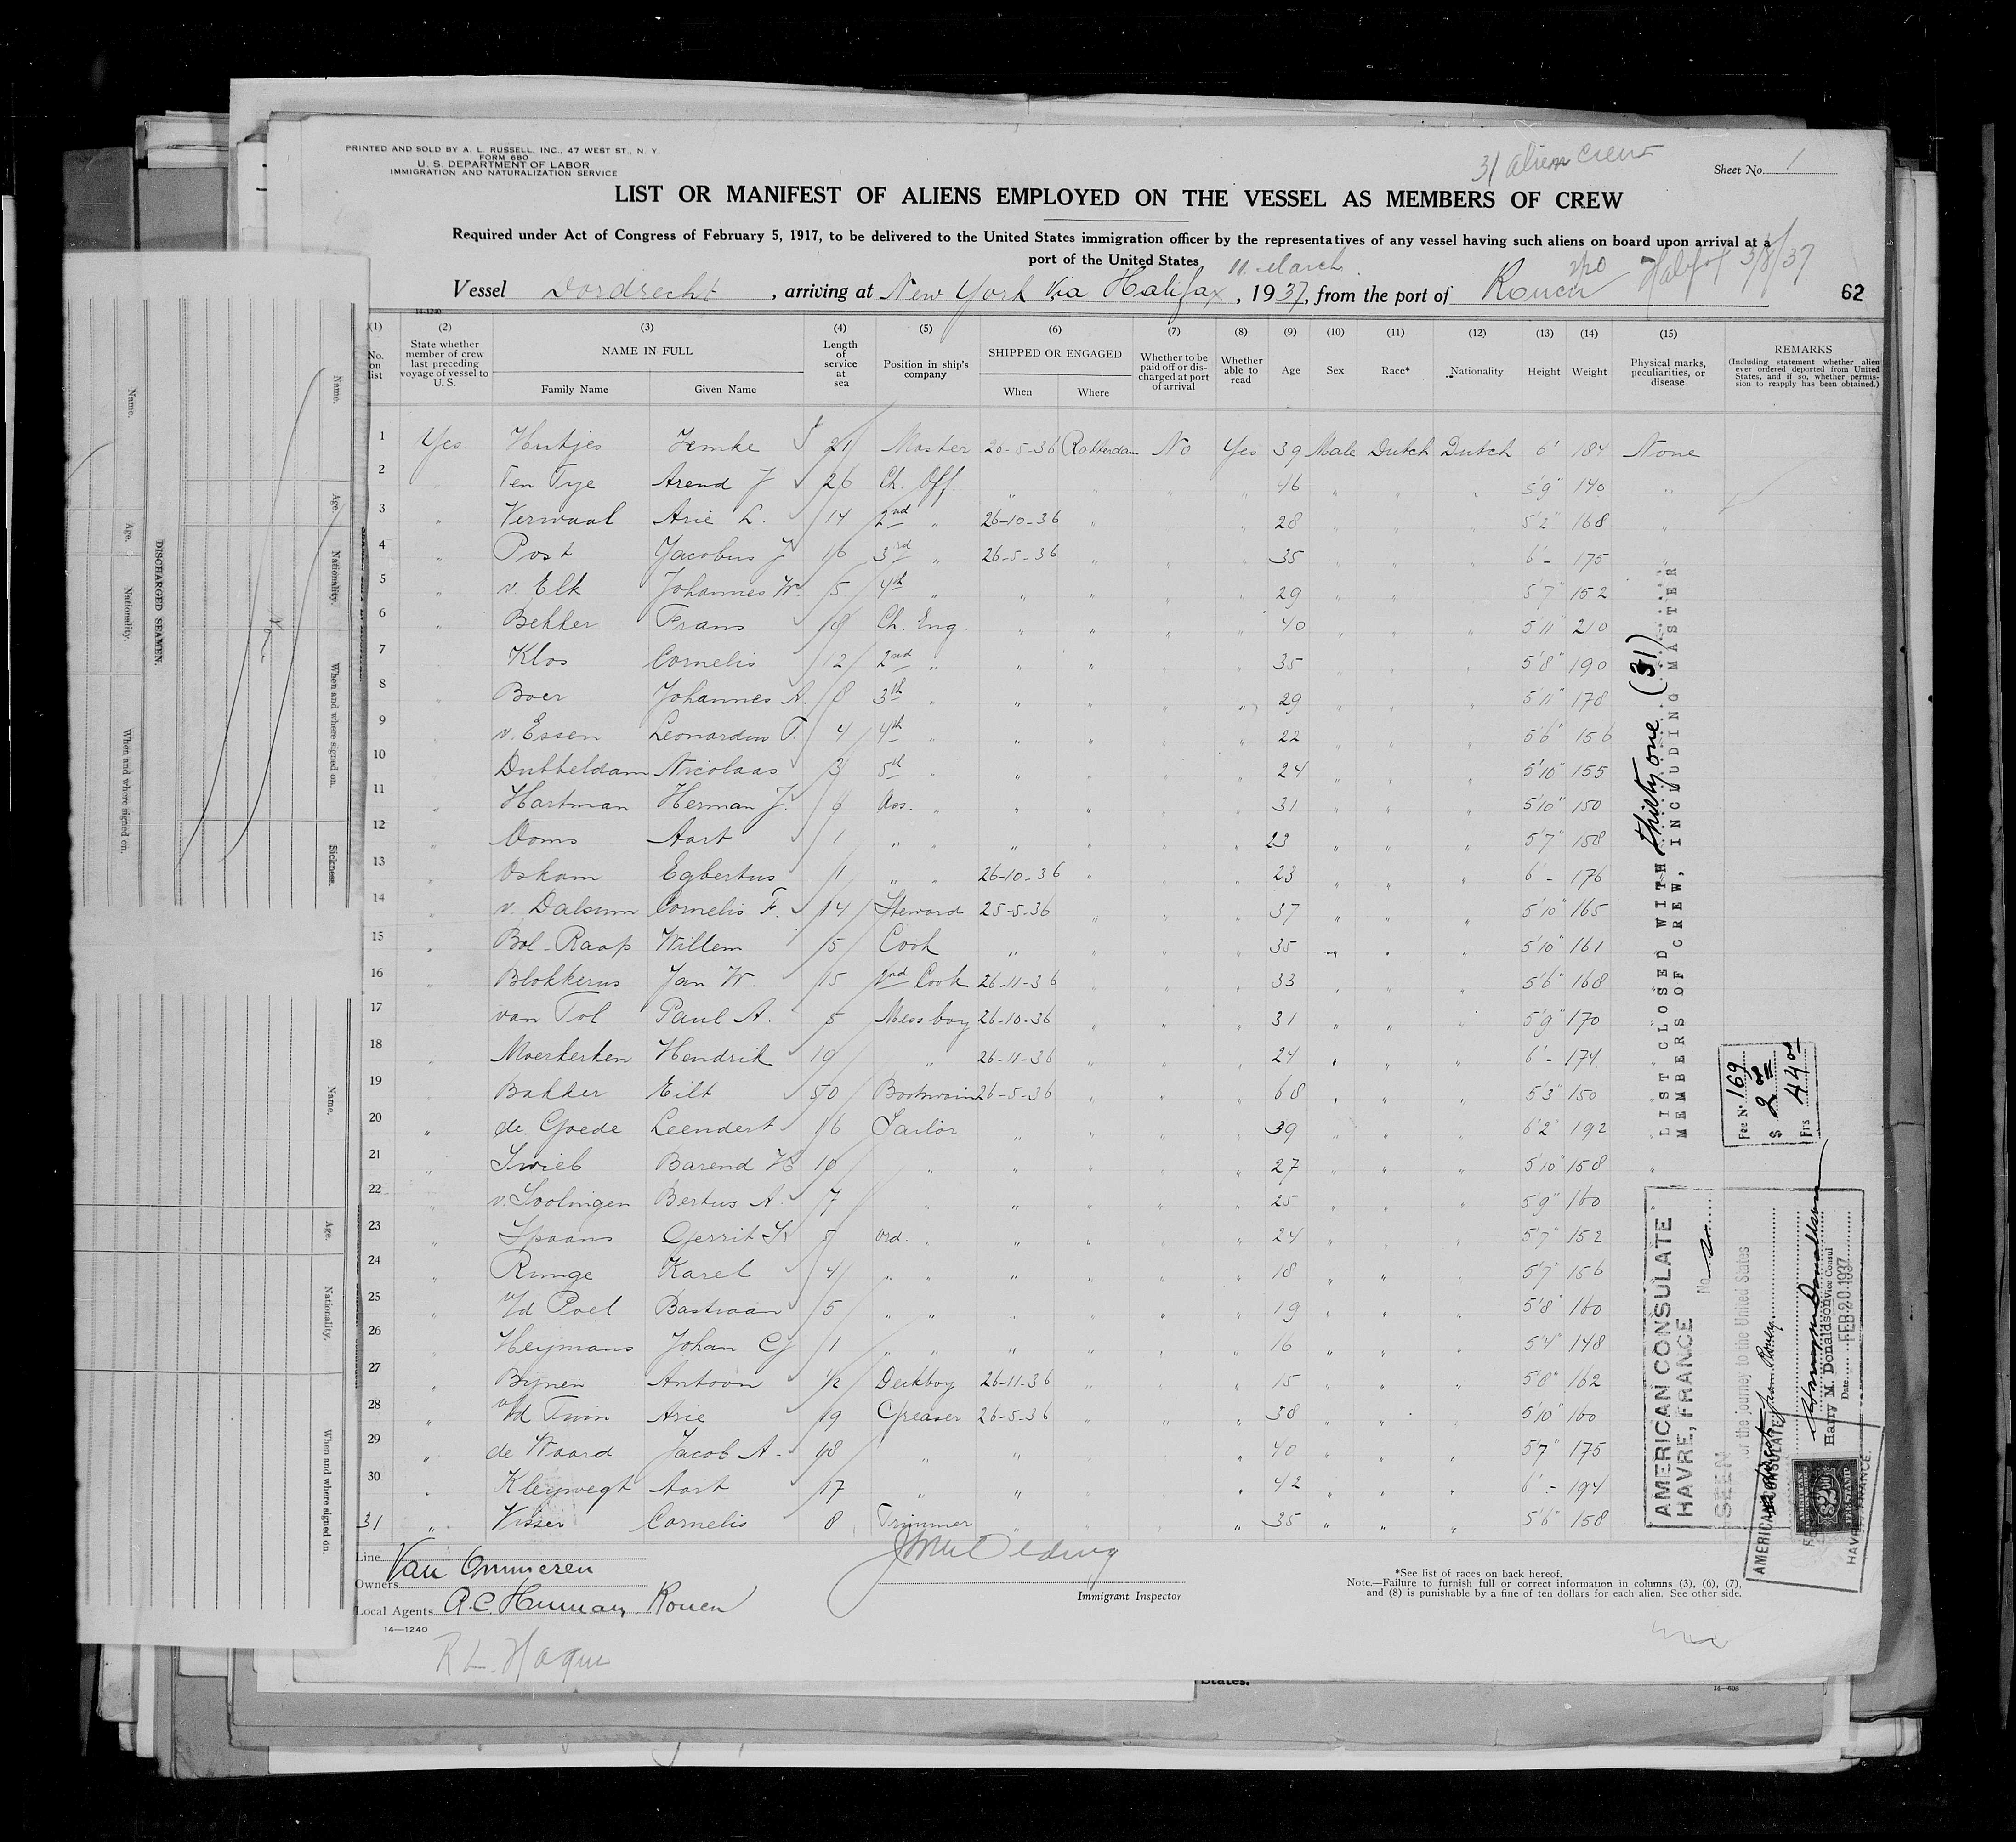 PRINTED AND SOLD BY A. L. RUSSELL, INC., 47 WEST ST., N. Y.
FORM 680
U. S. DEPARTMENT OF LABOR
IMMIGRATION AND NATURALIZATION SERVICE
31 alien crew
Sheet No. 1
LIST OR MANIFEST OF ALIENS EMPLOYED ON THE VESSEL AS MEMBERS OF CREW
Required under Act of Congress of February 5, 1917, to be delivered to the United States immigration officer by the representatives of any vessel having such aliens on board upon arrival at a
port of the United States
11 March
Halifax 3/8/37
Vessel Dordrecht, arriving at New York Via Halifax, 1937, from the port of Rouen
62
14-1240
(1) (2) (3) (4) (5) (6) (7) (8) (9) (10) (11) (12) (13) (14) (15)
No. on list
State whether member of crew last preceding voyage of vessel to U. S.
NAME IN FULL
Family Name Given Name
Length of service at sea
Position in ship's company
SHIPPED OR ENGAGED
When Where
Whether to be paid off or discharged at port of arrival
Whether able to read
Age Sex Race* Nationality Height Weight
Physical marks, peculiarities, or disease
REMARKS
(Including statement whether alien ever ordered deported from United States, and if so, whether permission to reapply has been obtained.)
1 Yes Hutjes Zemke 21 Master 20-5-36 Rotterdam No Yes 39 Male Dutch Dutch 6' 184 None
2 " Ten Tye Arend J 26 Ch. Off. " " " " 46 " " " 5'9" 140 "
3 " Verwaal Arie L. 14 2nd " 26-10-36 " " " 28 " " " 5'2" 168 "
4 " Post Jacobus J 16 3rd " 26-5-36 " " " 35 " " " 6'- 175 "
5 " v. Elk Johannes W. 5 4th " " " " " 29 " " " 5'7" 152
6 " Bekker Frans 18 Ch. Eng. " " " " 40 " " " 5'11" 210
7 " Klos Cornelis 12 2nd " " " " " 35 " " " 5'8" 190
8 " Boer Johannes A. 8 3th " " " " " 29 " " " 5'11" 178
9 " v. Essen Leonardus T. 4 4th " " " " " 22 " " " 5'6" 156
10 " Dubbeldam Nicolaas 3 5th " " " " " 24 " " " 5'10" 155
11 " Hartman Herman J. 6 Ass. " " " " " 31 " " " 5'10" 150
12 " Ooms Aart 1 " " " " " " 23 " " " 5'7" 158
13 " Oskam Egbertus 1 " " 26-10-36 " " " 23 " " " 6'- 176
14 " v. Dalsum Cornelis F. 14 Steward 25-5-36 " " " 37 " " " 5'10" 165
15 " Bol-Raap Willem 5 Cook " " " " 35 " " " 5'10" 161
16 " Blokkerus Jan W. 15 2nd Cook 26-11-36 " " " 33 " " " 5'6" 168
17 " van Tol Paul A. 5 Messboy 26-10-36 " " " 31 " " " 5'9" 170
18 " Moerkerken Hendrik 10 " 26-11-36 " " " 24 " " " 6'- 174
19 " Bakker Eilt 50 Bootswain 26-5-36 " " " 68 " " " 5'3" 150
20 " de Goede Leendert 16 Sailor " " " " 39 " " " 6'2" 192
21 " Swieb Barend H 10 " " " " " 27 " " " 5'10" 158 "
22 " v. Soolingen Bertus A. 7 " " " " " 25 " " " 5'9" 160
23 " Spaans Gerrit 5 ord. " " " " " 24 " " " 5'7" 152
24 " Runge Karel 4 " " " " " " 18 " " " 5'7" 156
25 " v/d Poel Bastiaan 5 " " " " " " 19 " " " 5'8" 160
26 " Heymans Johan CJ 1 " " " " " " 16 " " " 5'4" 148
27 " Bijnen Antoon 1/2 Deckboy 26-11-36 " " " 15 " " " 5'8" 162
28 " v/d Tuin Arie 19 Greaser 26-5-36 " " " 38 " " " 5'10" 160
29 " de Waard Jacob A. 18 " " " " " 40 " " " 5'7" 175
30 " Kleijwegt Aart 17 " " " " " 42 " " " 6'- 194
31 " Visser Cornelis 8 Trimmer " " " " 35 " " " 5'6" 158
LIST CLOSED WITH thirty one (31)
MEMBERS OF CREW, INCLUDING MASTER
Fee No. 169
$ 2.00
Frs 44.00
AMERICAN CONSULATE
HAVRE, FRANCE
SEEN
for the journey to the United States
Harry M. Donaldson Vice Consul
Date FEB 20 1937
AMERICAN CONSULATE
HAVRE, FRANCE.
Line Van Ommeren
Owners
Local Agents A.C. Herman, Rouen
Immigrant Inspector
*See list of races on back hereof.
Note.—Failure to furnish full or correct information in columns (3), (6), (7),
and (8) is punishable by a fine of ten dollars for each alien. See other side.
14—1240
R L. Hague
States.
14—608
DISCHARGED SEAMEN.
Name. Age. Nationality. When and where signed on.
Name. Age. Nationality. When and where signed on. Sickness.
Name. Age. Nationality. When and where signed on.